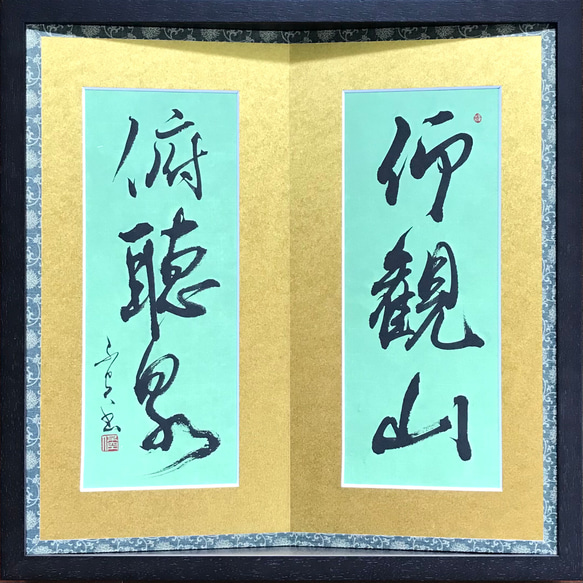 仰観山
俯聴泉